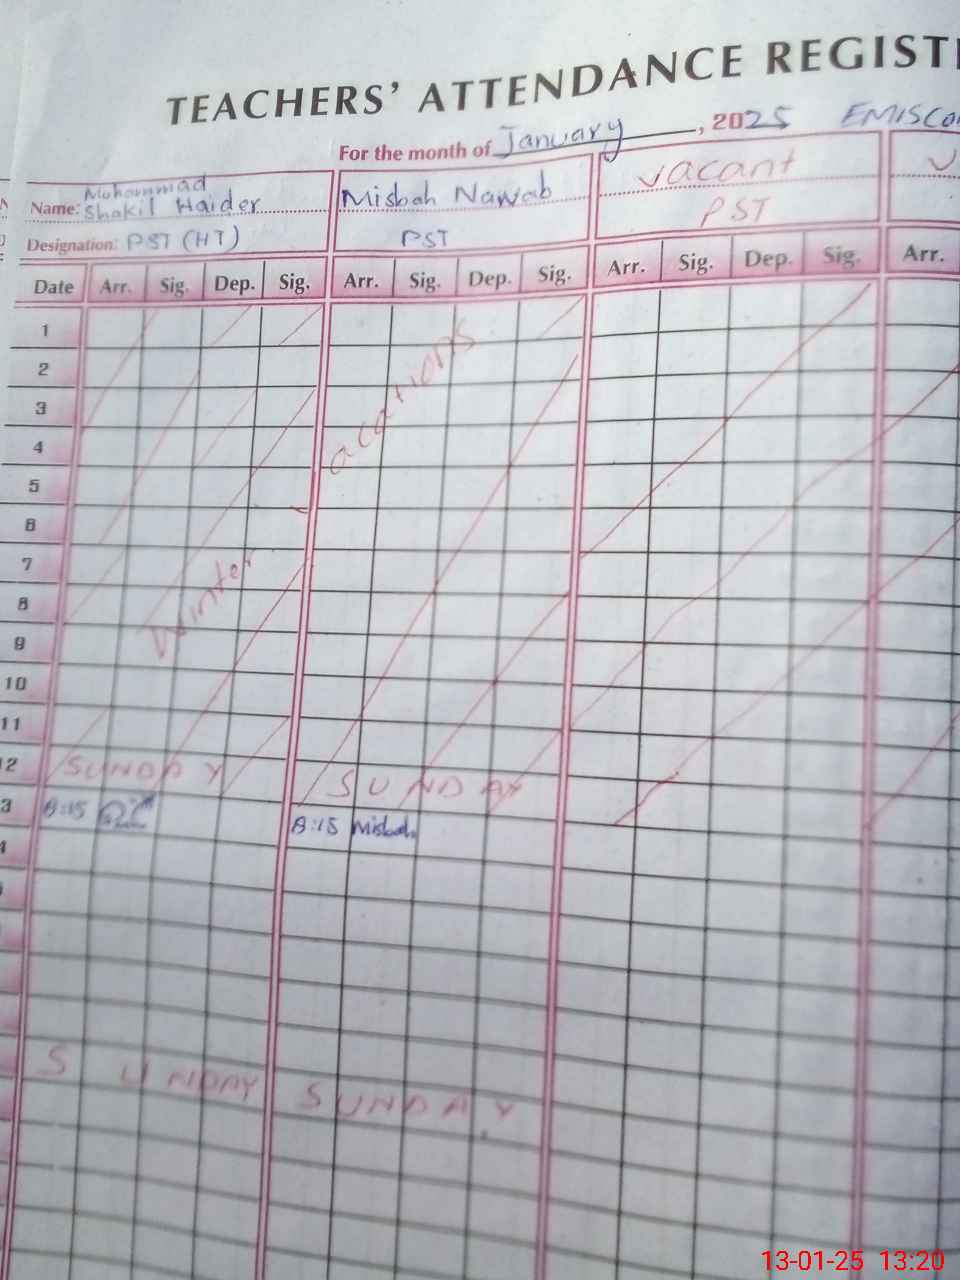 TEACHERS' ATTENDANCE REGIST
For the month of January, 2025 EMISCO
Name: Mohammad Shakil Haider
Misbah Nawab
Vacant
V
Designation: PST (HT)
PST
PST
Date Arr. Sig. Dep. Sig. Arr. Sig. Dep. Sig. Arr. Sig. Dep. Sig. Arr.
1
2
3
4
5
6
7
8
9
10
11
Winter vacations
2 SUNDAY SUNDAY
3 8:15 8:15 Misbah
4
SUNDAY SUNDAY
13-01-25 13:20